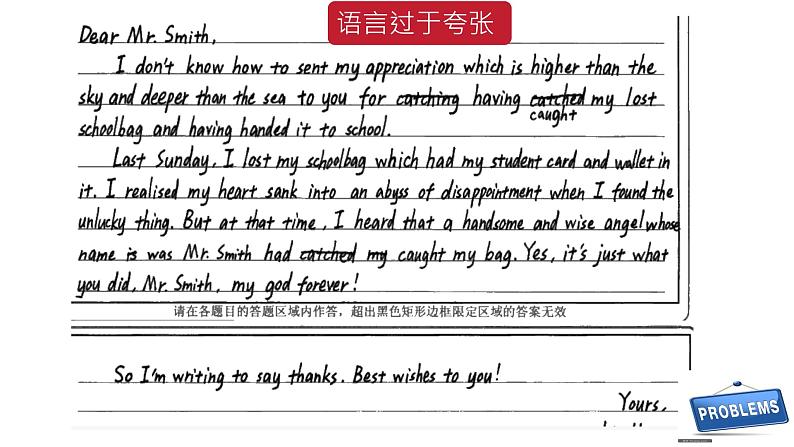 语言过于夸张
Dear Mr. Smith,
I don't know how to sent my appreciation which is higher than the
sky and deeper than the sea to you for catching having catched my lost
caught
schoolbag and having handed it to school.
Last Sunday, I lost my schoolbag which had my student card and wallet in
it. I realised my heart sank into an abyss of disappointment when I found the
unlucky thing. But at that time, I heard that a handsome and wise angel whose
name is was Mr. Smith had catched my caught my bag. Yes, it's just what
you did, Mr. Smith, my god forever!
请在各题目的答题区域内作答，超出黑色矩形边框限定区域的答案无效
So I'm writing to say thanks. Best wishes to you!
Yours,
PROBLEMS